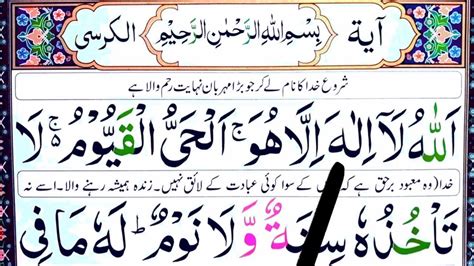 آية بِسْمِ اللهِ الرَّحْمٰنِ الرَّحِيْمِ الكرسى
شروع خدا کا نام لے کر جو بڑا مہربان نہایت رحم والا ہے
اَللّٰهُ لَآ اِلٰهَ اِلَّا هُوَ ۚ اَلْحَىُّ الْقَيُّوْمُ ۚ۬ لَا
خدا (وہ معبود برحق ہے کہ کے سوا کوئی عبادت کے لائق نہیں۔ زندہ ہمیشہ رہنے والا۔ اسے نہ
تَاْخُذُهٗ سِنَةٌ وَّلَا نَوْمٌ ؕ لَهٗ مَا فِى